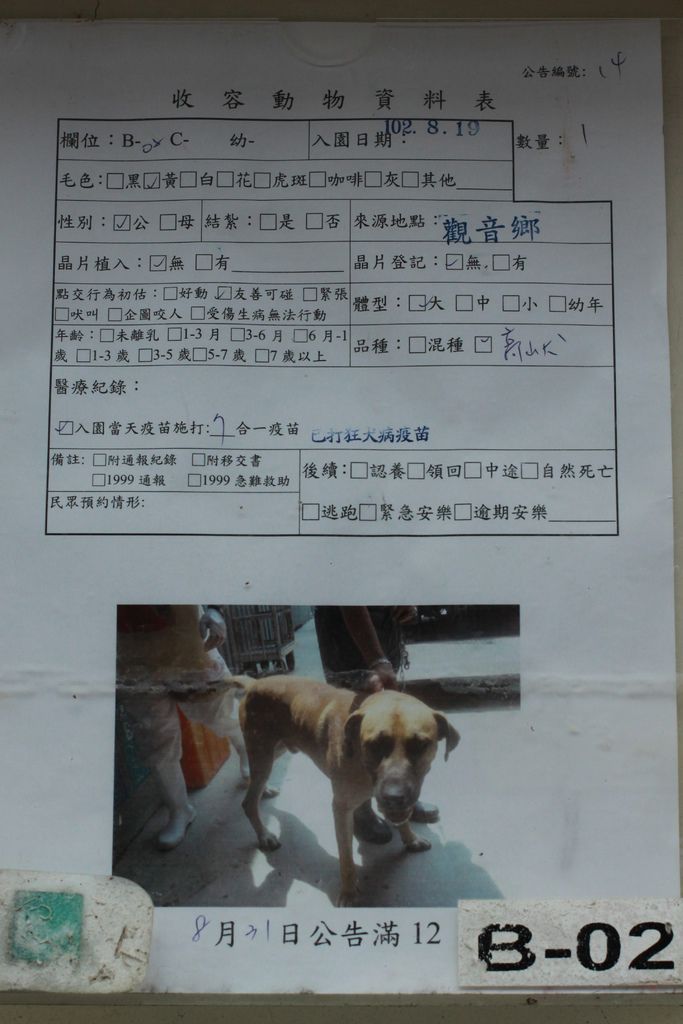 公告編號: 14
收容動物資料表
欄位：B-02 C- 幼- 入園日期：102.8.19 數量：1
毛色：□黑☑黃□白□花□虎斑□咖啡□灰□其他
性別：☑公 □母 結紮：□是 □否 來源地點：觀音鄉
晶片植入：☑無 □有 晶片登記：☑無.□有
點交行為初估：□好動 ☑友善可碰 □緊張
□吠叫 □企圖咬人 □受傷生病無法行動
體型：☑大 □中 □小 □幼年
年齡：□未離乳 □1-3月 □3-6月 □6月-1
歲 □1-3歲 □3-5歲□5-7歲 □7歲以上
品種：□混種 ☑ 高山犬
醫療紀錄：
☑入園當天疫苗施打:7合一疫苗 已打狂犬病疫苗
備註: □附通報紀錄 □附移交書
□1999通報 □1999急難救助
民眾預約情形:
後續：□認養□領回□中途□自然死亡
□逃跑□緊急安樂□逾期安樂
8月31日公告滿12
B-02